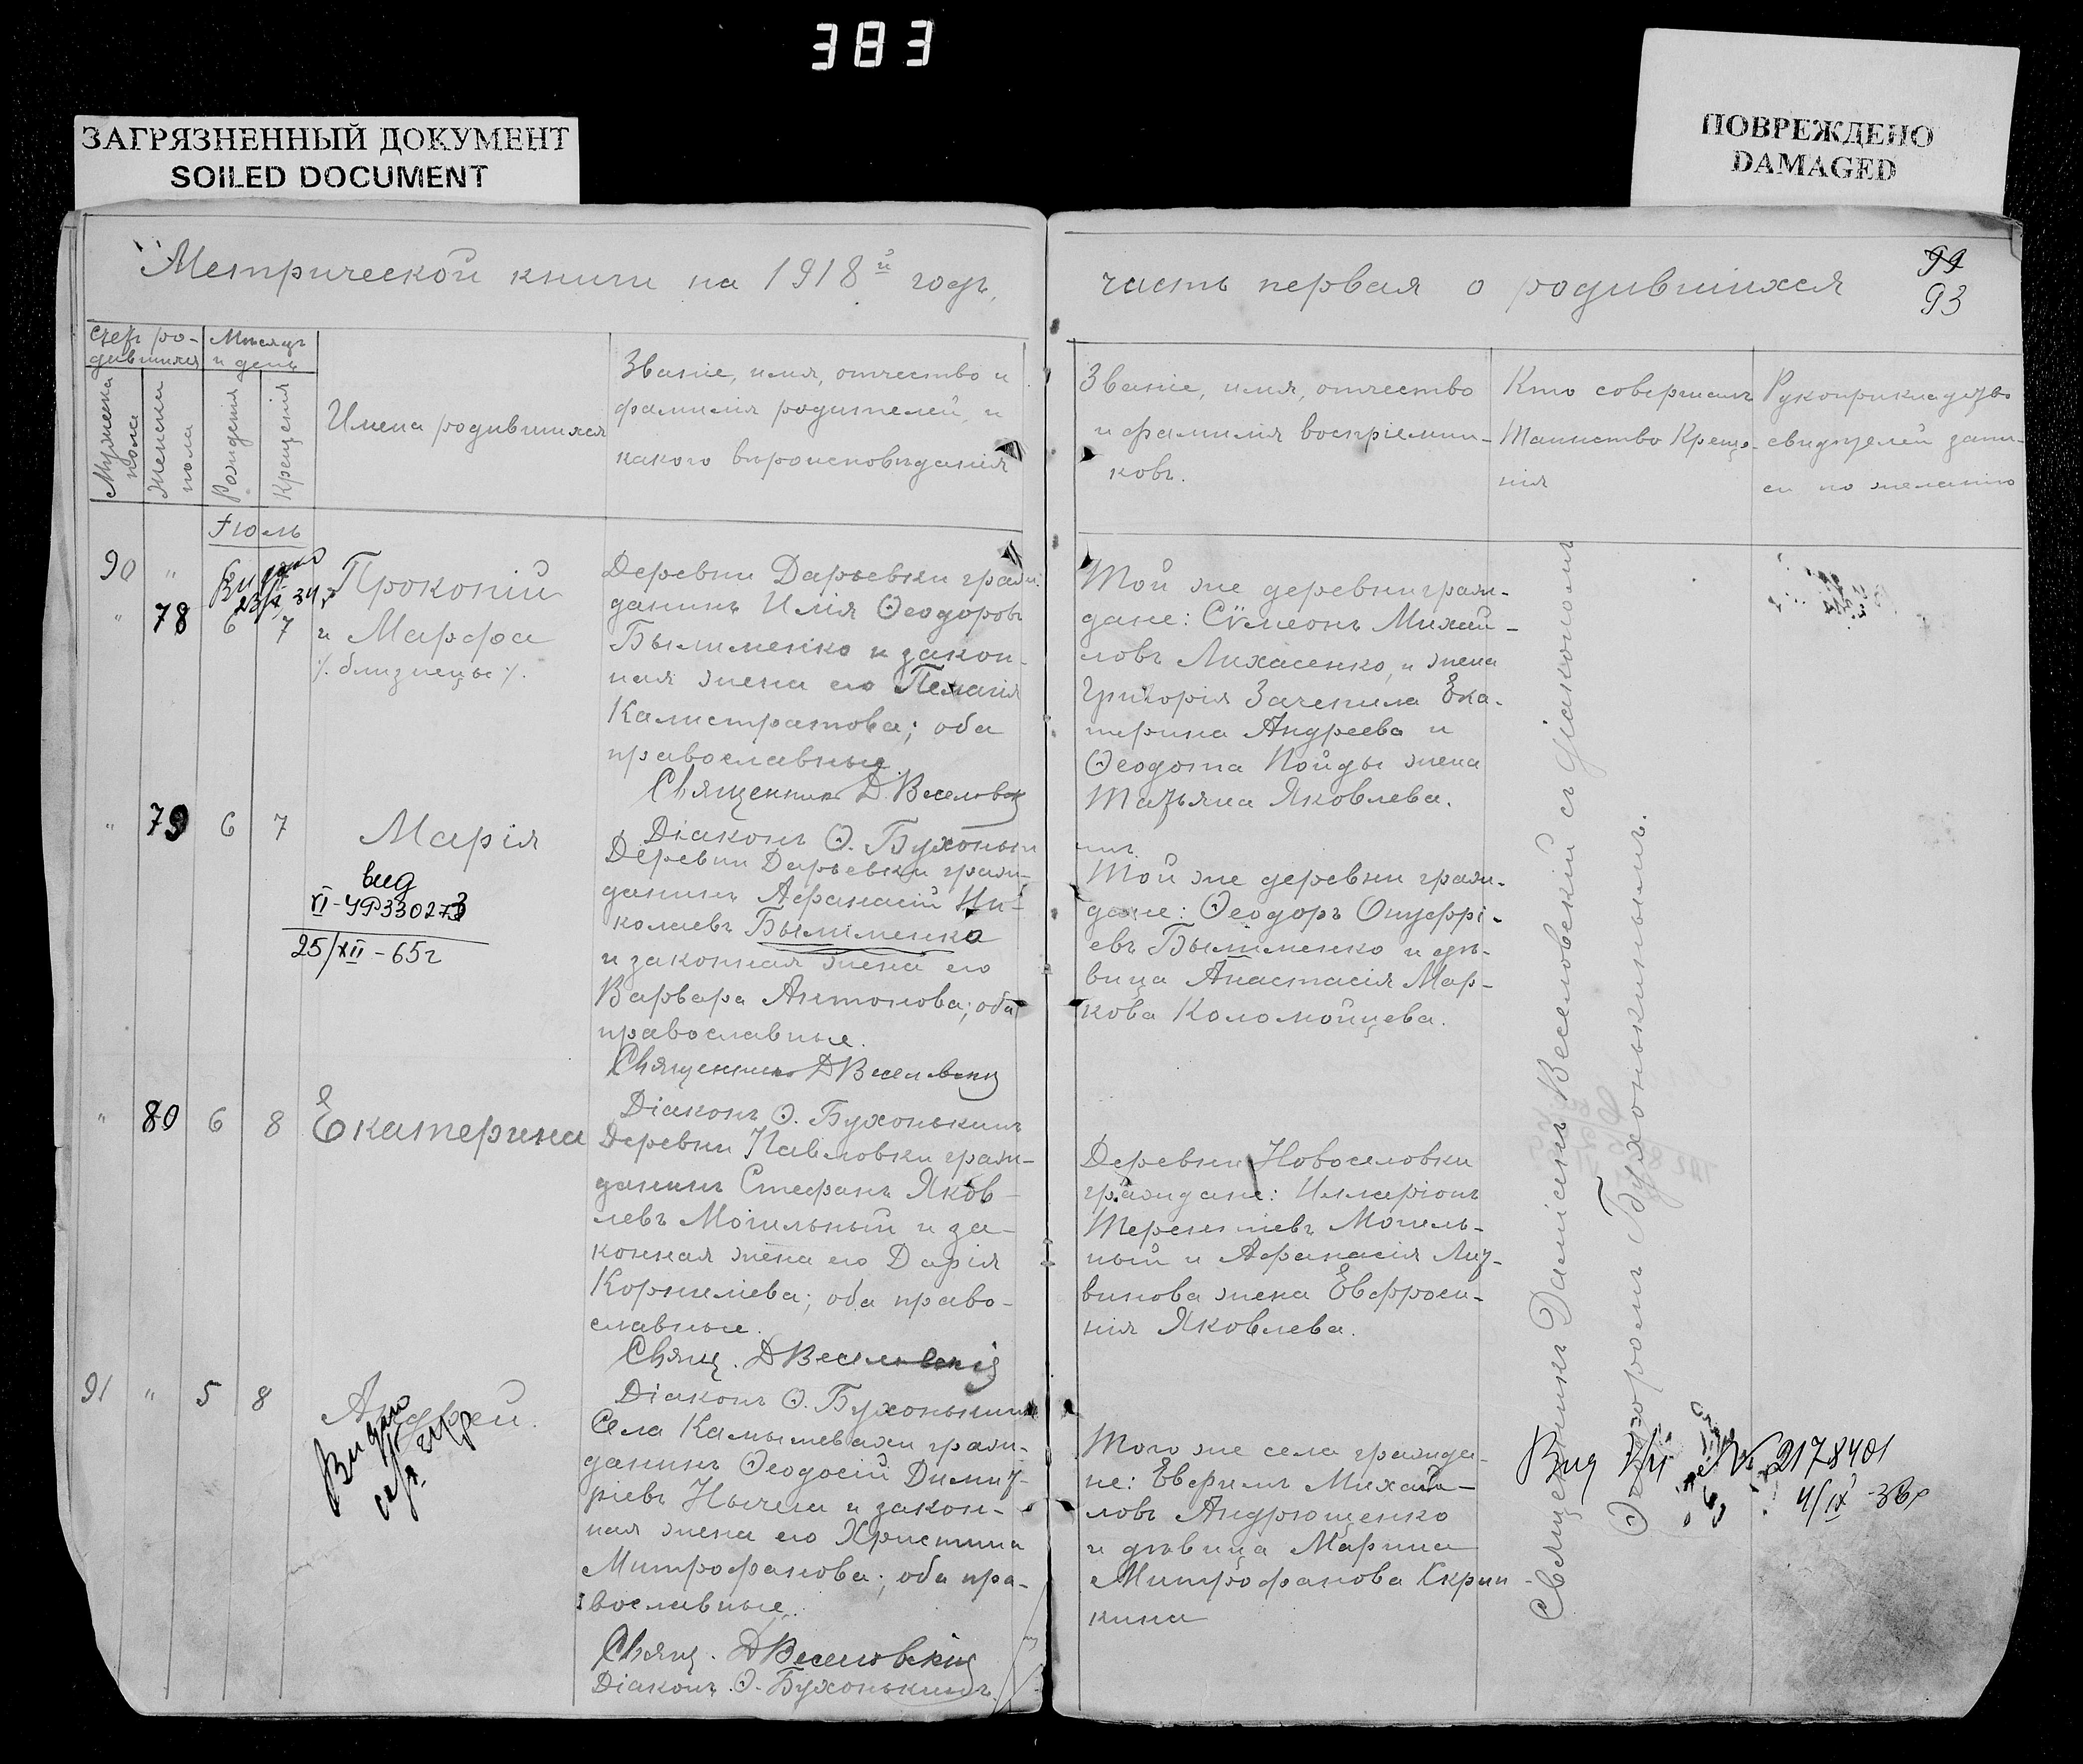 383
ЗАГРЯЗНЕННЫЙ ДОКУМЕНТ
SOILED DOCUMENT
ПОВРЕЖДЕНО
DAMAGED
Метрической книги на 1918й годъ,
часть первая о родившихся
99
93
Счетъ ро-
дившихся
Мужеска пола
Женска пола
Мѣсяцъ
и день
Рожденія
Крещенія
Имена родившихся
Званіе, имя, отчество и
фамилія родителей, и
какого вѣроисповѣданія
Званіе, имя, отчество
и фамилія воспріемни-
ковъ.
Кто совершалъ
Таинство Креще-
нія
Рукоприкладство
свидѣтелей запи-
си по желанію
Іюль
90 "
" 78 6 7
Прокопій
и Марфа
/. близнецы /.
Деревни Дарьевки граж-
данинъ Илія Ѳеодоровъ
Былименко и закон-
ная жена его Пелагія
Калистратова; оба
православные.
Священникъ Д. Веселовскій
Діаконъ Ѳ. Бухонькинъ
Той же деревни граж-
дане: Сѵмеонъ Михай-
ловъ Лихасенко, и жена
Григорія Зачепила Ека-
терина Андреева и
Ѳеодота Пойды жена
Татьяна Яковлева.
" 79 6 7
Марія
вид
VI-УР330273
25/XII-65г
Деревни Дарьевки граж-
данинъ Афанасій Ни-
колаевъ Былименко
и законная жена его
Варвара Антонова; оба
православные.
Священникъ Д Веселовскій
Діаконъ Ѳ. Бухонькинъ
Той же деревни граж-
дане: Ѳеодоръ Онуфрі-
евъ Былименко и дѣ-
вица Анастасія Мар-
кова Коломойцева.
" 80 6 8
Екатерина
Деревни Павловки граж-
данинъ Стефанъ Яков-
левъ Могильный и за-
конная жена его Дарія
Корниліева; оба право-
славные.
Свящ. Д Веселовскій
Діаконъ Ѳ. Бухонькинъ
Деревни Новоселовки
граждане: Илларіонъ
Терентіевъ Могиль-
ный и Афанасія Лит-
винова жена Евфроси-
нія Яковлева.
91 " 5 8
Андрей.
Видано
Села Камышевахи граж-
данинъ Ѳеодосій Димит-
ріевъ Нычега и закон-
ная жена его Христина
Митрофанова; оба пра-
вославные.
Свящ. Д Веселовскій
Діаконъ Ѳ. Бухонькинъ.
Того же села гражда-
не: Евфимъ Михай-
ловъ Андрющенко
и дѣвица Марина
Митрофанова Скрип-
кина
Священникъ Даміанъ Веселовскій съ діакономъ
Ѳеодоромъ Бухонькинымъ.
Вид
№ 2178401
4/IX